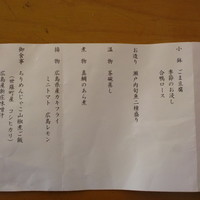 小鉢　ごま豆腐
季節のお浸し
合鴨ロース
お造り　瀬戸内旬魚二種盛り
温物　茶碗蒸し
煮物　真鯛のあら煮
揚物　広島県産カキフライ
ミニトマト　広島レモン
御食事　ちりめんじゃこ山椒煮ご飯
(世羅町産　コシヒカリ)